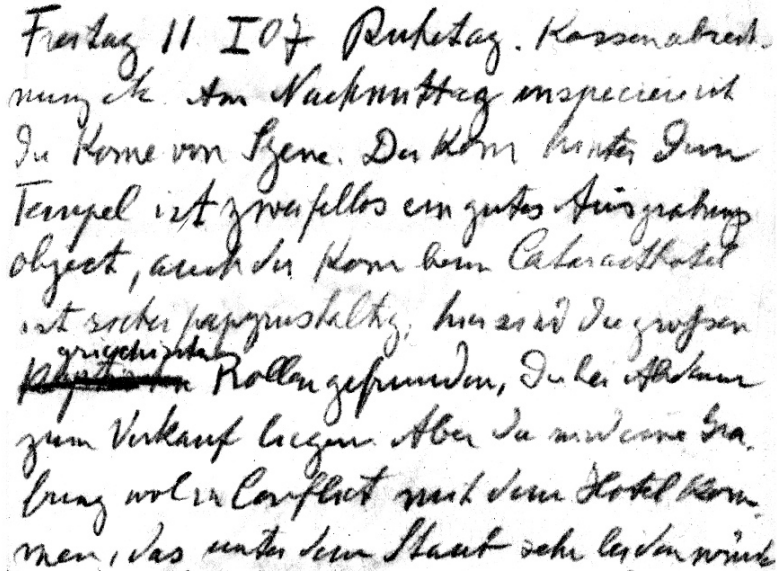 Freitag 11 I 07 Ruhetag. Kassenabrech-
nung etc. Am Nachmittag inspeciere ich
die Kome von Syene. Der Kom hinter dem
Tempel ist zweifellos ein gutes Ausgrabungs
object, auch der Kom beim Cataracthotel
ist sicher papyrushaltig, hier sind die großen
griechischen
Rollen gefunden, die bei
zum Verkauf liegen. Aber da wird eine Gra-
bung wol in Conflict mit dem Hotel kom-
men, das unter dem Staub sehr leiden würde